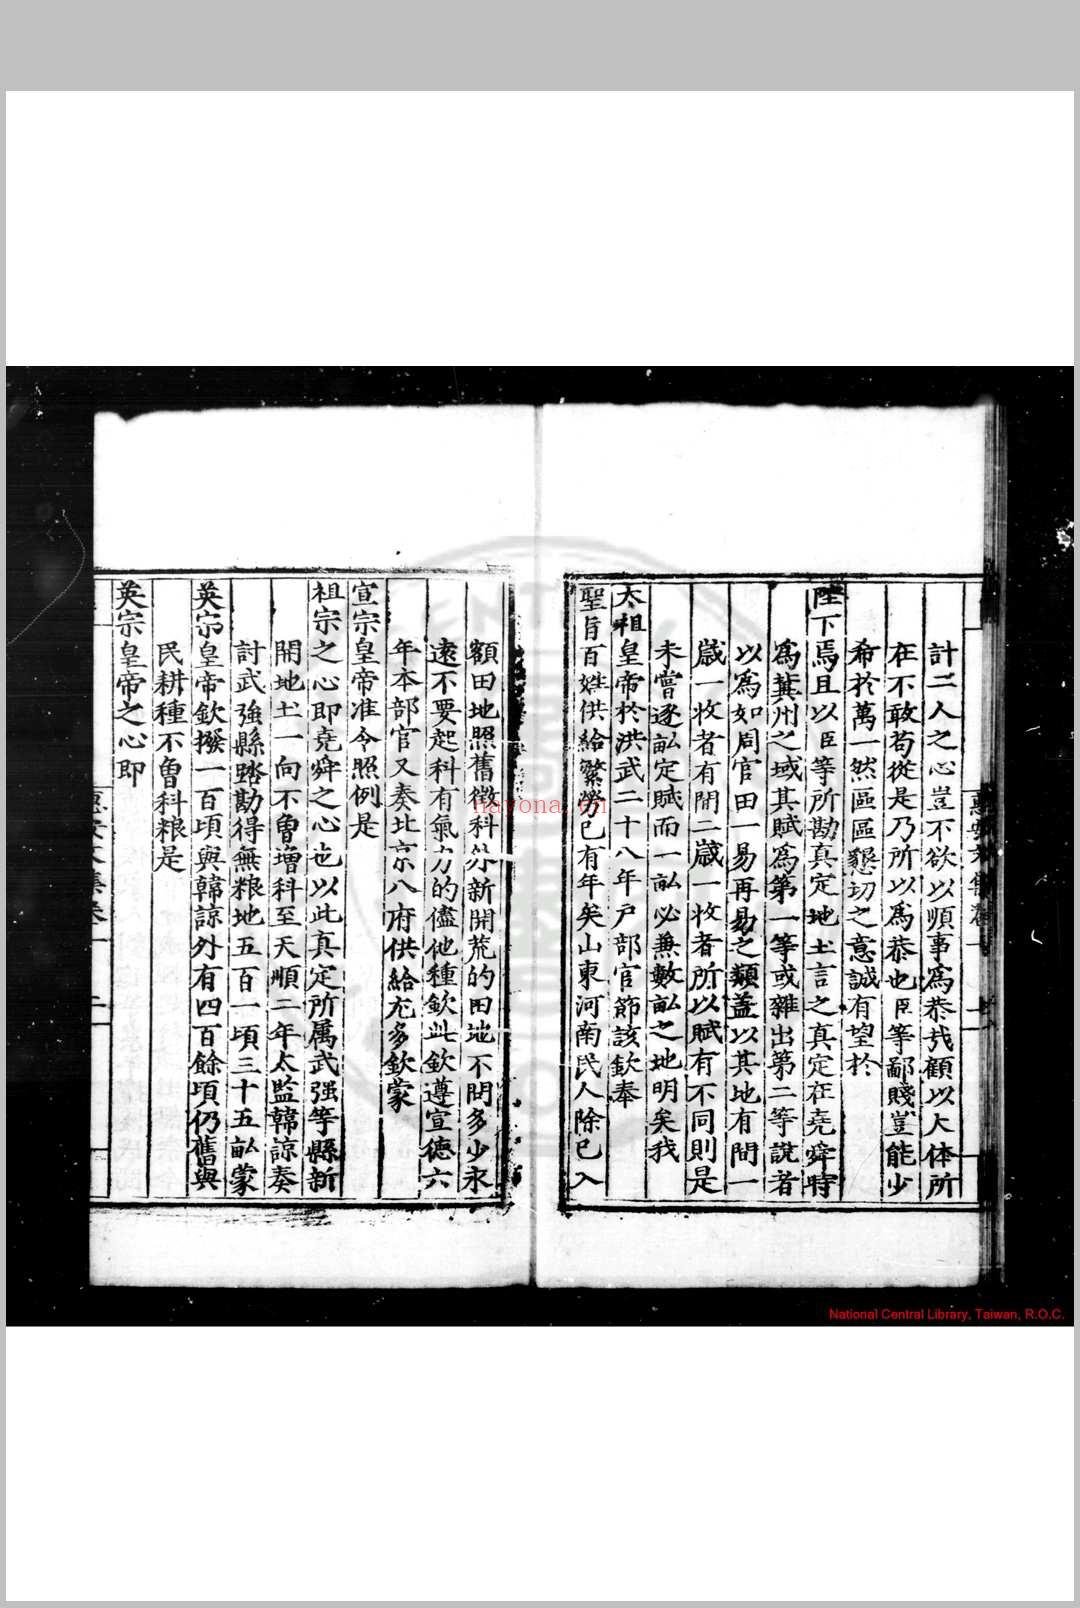 計二人之心豈不欲以順事為恭㢤顧以大体所
在不敢苟從是乃所以為恭也臣等鄙賤豈能少
希於萬一然區區懇切之意誠有望於
陛下焉且以臣等所勘真定地土言之真定在堯舜時
為冀州之域其賦為第一等或雜出第二等說者
以為如周官田一易再易之類盖以其地有間一
歲一收者有間二歲一收者所以賦有不同則是
未嘗逐畆定賦而一畆必兼數畆之地明矣我
太祖皇帝於洪武二十八年户部官節該欽奉
聖旨百姓供給繁勞已有年矣山東河南民人除已入
額田地照舊徵科外新開荒的田地不問多少永
遠不要起科有氣力的儘他種欽此欽遵宣德六
年本部官又奏北京八府供給尤多欽蒙
宣宗皇帝准令照例是
祖宗之心即堯舜之心也以此真定所属武强等縣新
開地土一向不曾增科至天順二年太監韓諒奏
討武强縣踏勘得無粮地五百一頃三十五畆蒙
英宗皇帝欽撥一百頃與韓諒外有四百餘頃仍舊與
民耕種不曾科粮是
英宗皇帝之心即
nayona.cn
National Central Library, Taiwan, R.O.C.